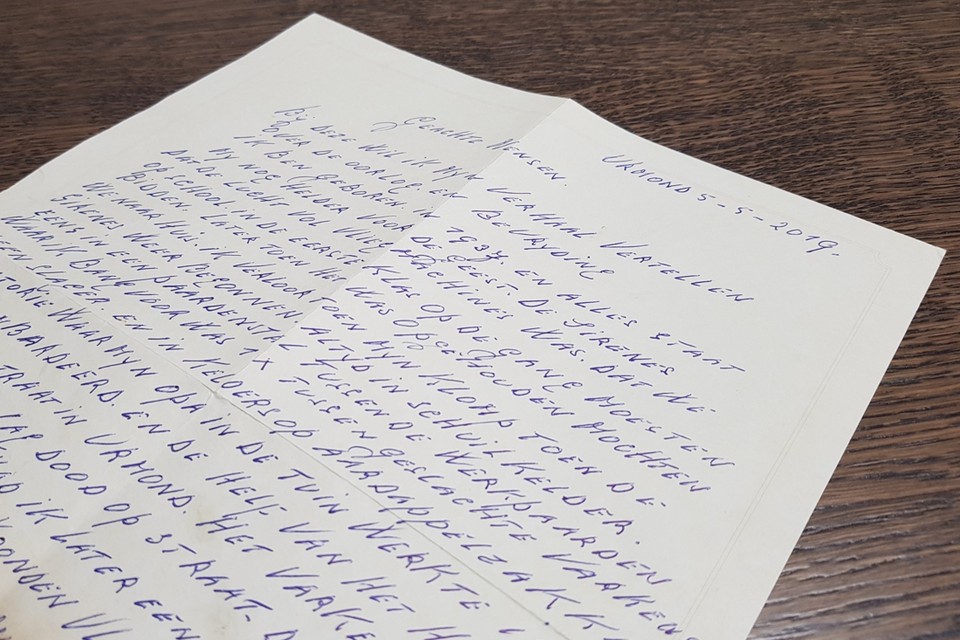 URMOND 5-5-2019.
GEACHTE MENSEN.
BY DEZE WIL IK MYN VERHAAL VERTELLEN
OVER DE OORLOG EN BEVRYDING
IK BEN GEBOREN IN 1937. EN ALLES STAAT
MY NOG HELDER VOOR DE GEEST. DE SIRENES
DAT DE LUCHT VOL VLIEGMACHINES WAS. DAT WE
OP SCHOOL IN DE EERSTE KLAS OP DE GANG MOESTEN
BIDDEN. LATER TOEN HET WAS OPGEHOUDEN MOCHTEN
WE NAAR HUIS. IK VERLOOR TOEN MYN KLOMP TOEN DE
SIRENES WEER BEGONNEN ALTYD IN SCHUILKELDER.
EENS IN EEN PAARDENSTAL TUSSEN DE WERKPAARDEN
WAAR IK BANG VOOR WAS 1X TUSSEN GESLACHTE VARKENS
EEN SLAPER. EN IN KELDERS OP AARDAPPELZAKK
TORIE WAAR MYN OPA IN DE TUIN WERKTE
MBARDEERD. EN DE HELFT VAN HET H
TRAAT IN URMOND. HET VARKE
LAG DOOD OP STRAAT. D
IK LATER EEN